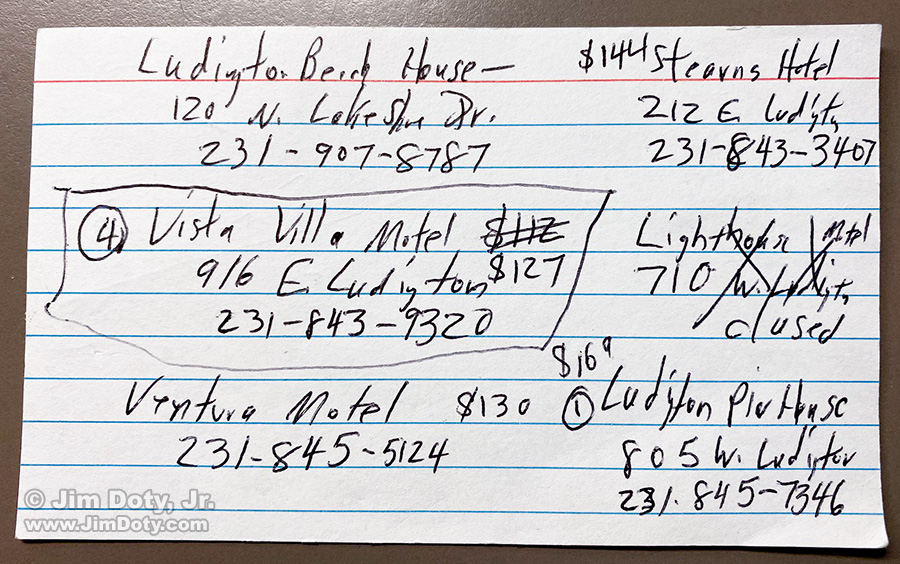 Ludington Beach House —
120 N. Lake Shore Dr.
231-907-8787
$144 Stearns Hotel
212 E. Ludington
231-843-3407
④ Vista Villa Motel $112
916 E. Ludington $127
231-843-9320
Lighthouse Motel
710 W. Ludington
closed
Ventura Motel $130
231-845-5124
$169
① Ludington Pier House
805 W. Ludington
231-845-7346
© Jim Doty, Jr.
www.JimDoty.com